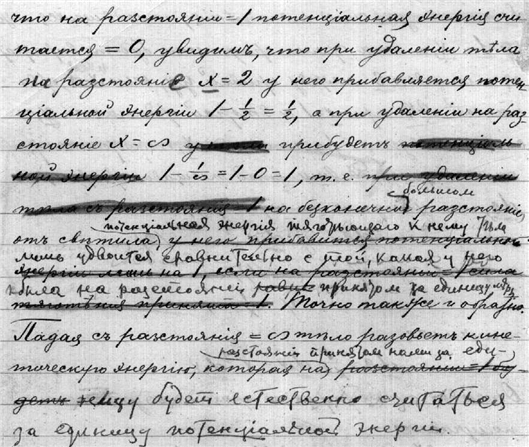 что на разстояніи = 1 потенціальная энергія счи
тается = 0, увидимъ, что при удаленіи тѣла
на разстояніе x = 2 у него прибавляется потен
ціальной энергіи 1 - 1/2 = 1/2, а при удаленіи на раз
стояніе x = ∞ прибудетъ потенціаль
ной энергіи 1 - 1/∞ = 1 - 0 = 1, т. е. при удаленіи
тѣла съ разстоянія 1 на безконечное разстояніе
потенціальная энергія тяготѣющаго къ нему тѣла
отъ свѣтила у него прибавится потенціальной
лишь удвоится сравнительно с той, какая у него
энергіи лишь на 1, если на разстояніи = 1 сила
была на разстояніи принятом за единицу мѣры
тяготѣнія принята 1. Точно также и обратно.
Падая съ разстоянія = ∞ тѣло разовьетъ кине
разстояніи принятом нами за еди
тическую энергію, которая на разстояніи = 1 бу
детъ ницу будет естественно считаться
за единицу потенціальной энергіи.